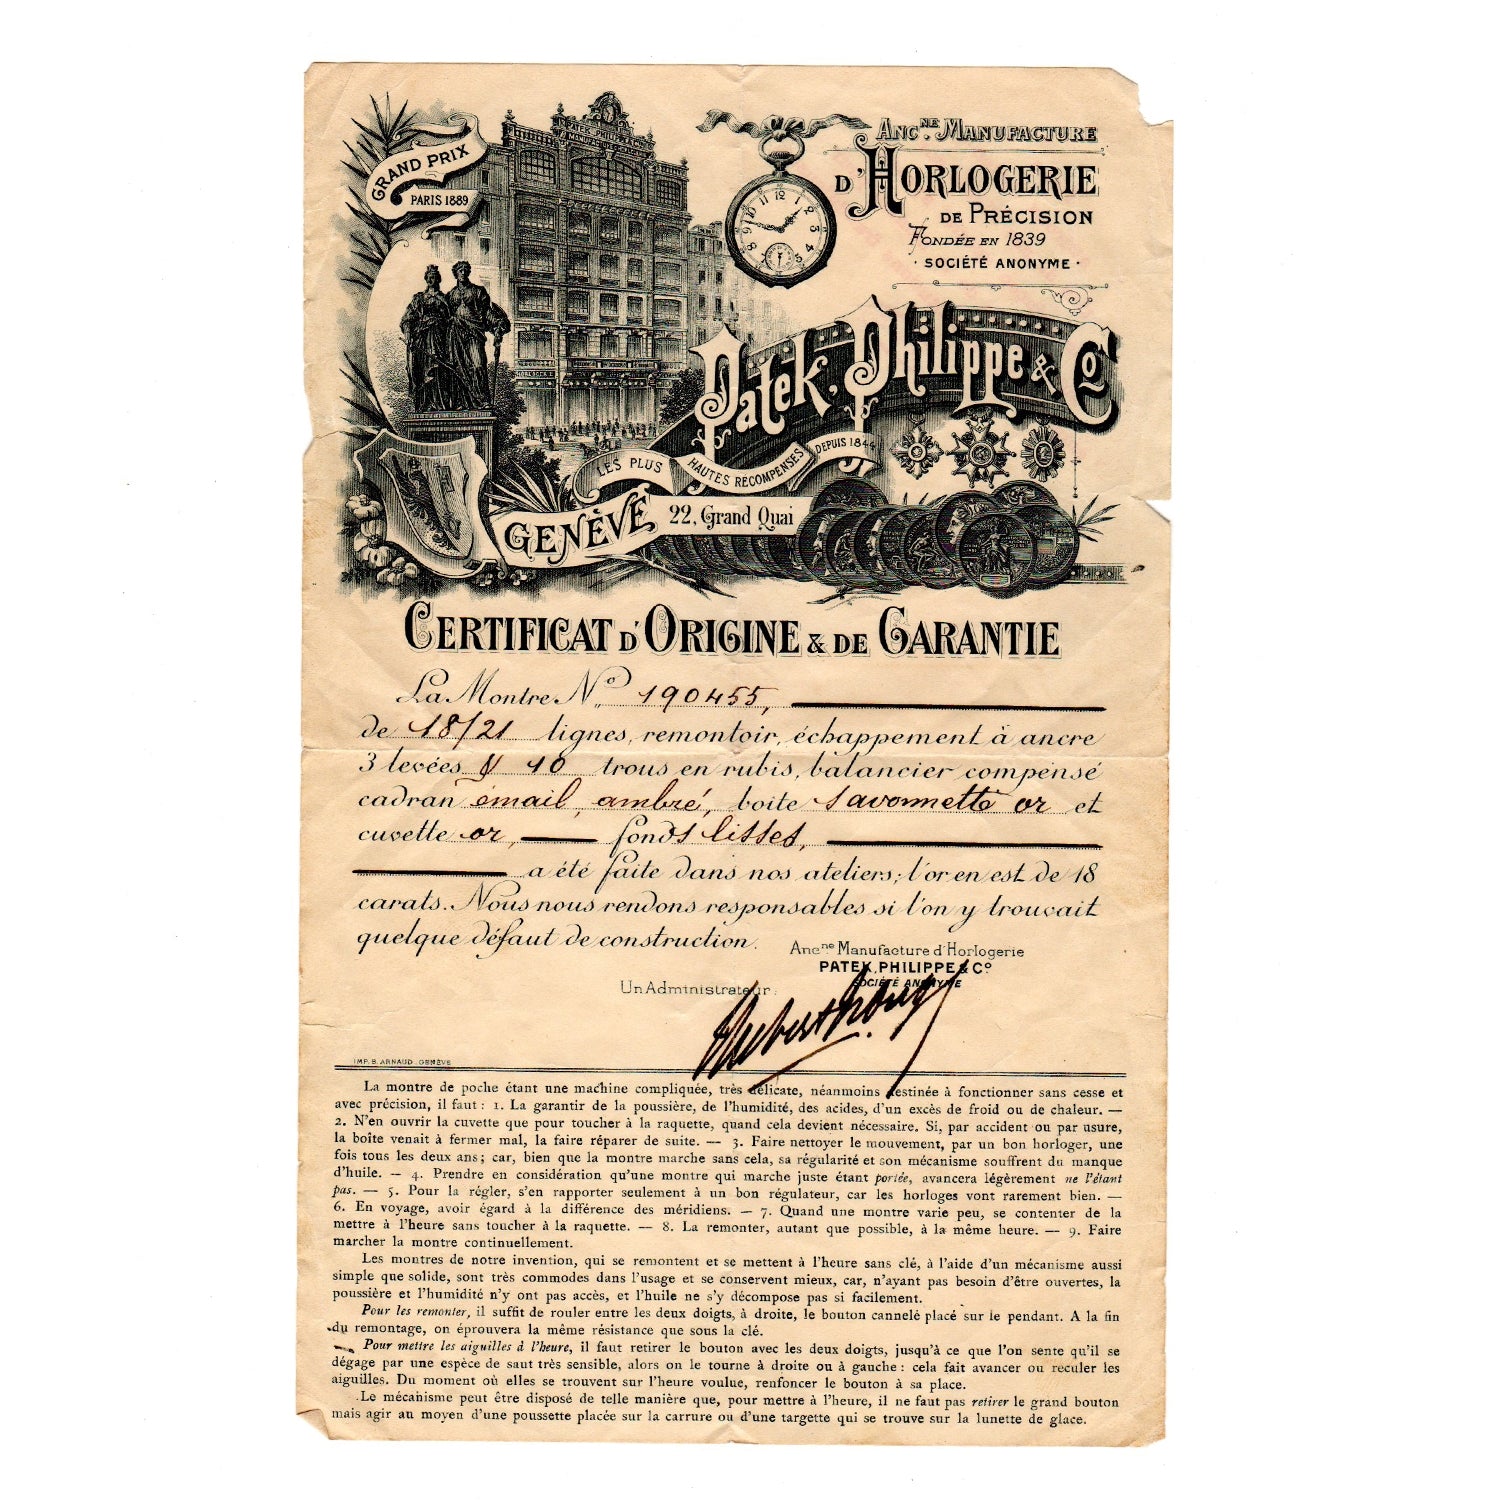 GRAND PRIX
PARIS 1889
PATEK PHILIPPE & Co
ANC.NE MANUFACTURE
D'HORLOGERIE
DE PRÉCISION
FONDÉE EN 1839
· SOCIÉTÉ ANONYME ·
Patek, Philippe & Co
LES PLUS HAUTES RÉCOMPENSES DEPUIS 1844
GENÈVE 22, Grand Quai
CERTIFICAT D'ORIGINE & DE GARANTIE
La Montre No 190455,
de 18/21 lignes, remontoir, échappement à ancre
3 levées 10 trous en rubis, balancier compensé
cadran émail, ambré, boîte savonnette or et
cuvette or, fonds lisses,
a été faite dans nos ateliers; l'or en est de 18
carats. Nous nous rendons responsables si l'on y trouvait
quelque défaut de construction.
Ancne Manufacture d'Horlogerie
PATEK, PHILIPPE & Co
SOCIÉTÉ ANONYME
Un Administrateur:
IMP. B. ARNAUD. GENÈVE
La montre de poche étant une machine compliquée, très délicate, néanmoins destinée à fonctionner sans cesse et
avec précision, il faut : 1. La garantir de la poussière, de l'humidité, des acides, d'un excès de froid ou de chaleur. —
2. N'en ouvrir la cuvette que pour toucher à la raquette, quand cela devient nécessaire. Si, par accident ou par usure,
la boîte venait à fermer mal, la faire réparer de suite. — 3. Faire nettoyer le mouvement, par un bon horloger, une
fois tous les deux ans; car, bien que la montre marche sans cela, sa régularité et son mécanisme souffrent du manque
d'huile. — 4. Prendre en considération qu'une montre qui marche juste étant portée, avancera légèrement ne l'étant
pas. — 5. Pour la régler, s'en rapporter seulement à un bon régulateur, car les horloges vont rarement bien. —
6. En voyage, avoir égard à la différence des méridiens. — 7. Quand une montre varie peu, se contenter de la
mettre à l'heure sans toucher à la raquette. — 8. La remonter, autant que possible, à la même heure. — 9. Faire
marcher la montre continuellement.
Les montres de notre invention, qui se remontent et se mettent à l'heure sans clé, à l'aide d'un mécanisme aussi
simple que solide, sont très commodes dans l'usage et se conservent mieux, car, n'ayant pas besoin d'être ouvertes, la
poussière et l'humidité n'y ont pas accès, et l'huile ne s'y décompose pas si facilement.
Pour les remonter, il suffit de rouler entre les deux doigts, à droite, le bouton cannelé placé sur le pendant. A la fin
du remontage, on éprouvera la même résistance que sous la clé.
Pour mettre les aiguilles à l'heure, il faut retirer le bouton avec les deux doigts, jusqu'à ce que l'on sente qu'il se
dégage par une espèce de saut très sensible, alors on le tourne à droite ou à gauche : cela fait avancer ou reculer les
aiguilles. Du moment où elles se trouvent sur l'heure voulue, renfoncer le bouton à sa place.
Le mécanisme peut être disposé de telle manière que, pour mettre à l'heure, il ne faut pas retirer le grand bouton
mais agir au moyen d'une poussette placée sur la carrure ou d'une targette qui se trouve sur la lunette de glace.